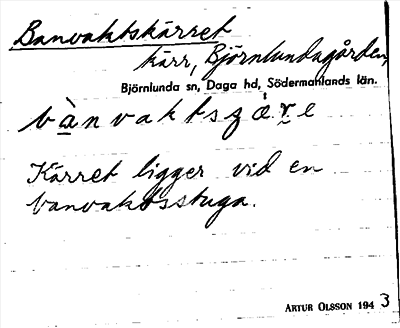 Banvaktskärret
kärr, Björnlundagården,
Björnlunda sn, Daga hd, Södermanlands län.
Kärret ligger vid en
banvaktsstuga.
ARTUR OLSSON 1943